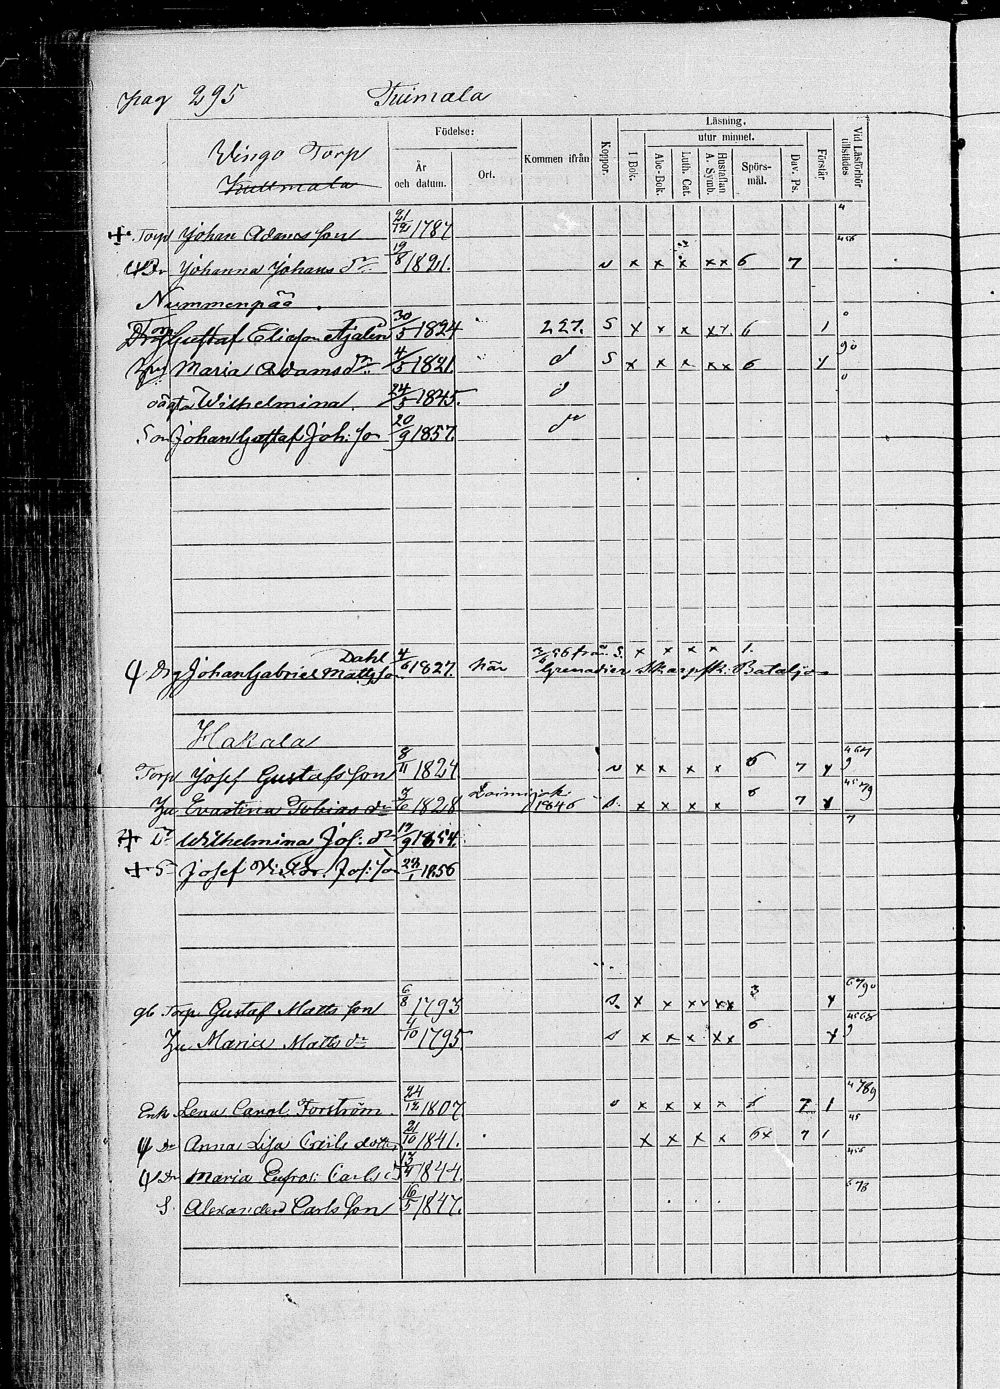 pag 295 Tuimala
Wingo Torp
Kultmala
Födelse:
År och datum.
Ort.
Kommen ifrån
Koppor.
Läsning.
I Bok.
utur minnet.
Abc-Bok.
Luth. Cat.
Hustaflan A. Symb.
Spörs-mål.
Dav. Ps.
Förstår
Vid Läsförhör tillstädes
Torp Johan Adams son 21/12 1787 4
Dr Johanna Johans dr 19/8 1821. v x x x xx 6 7 456
Nummenpää
Gustaf Ericson Ajalin 30/5 1824 227. S x x x xx 6 1
Maria Adamsdr 4/5 1821. d S x x x xx 6 x 90
oägta Wilhelmina. 24/5 1845. d
Son Johan Gustaf Joh: so 20/9 1857.
Drg Johan Gabriel Mattsson Dahl 4/6 1827. här 56 från S. x x x x 1.
Grenadier Skarpsk: Bataljon
Hakala
Torp Josef Gustafs son 8/11 1824 v x x x x 6 7 x
Hu Evastina Tobias dr 1828 Loimijok 1846 S. x x x x 6 7 x
Dr Wilhelmina Jos: dr 13/9 1854. 7
S Josef Victor. Jos: so 1856
gb Torp Gustaf Matts son 6/8 1793 S. x x xx xx 3 x 6790
Hu Maria Matts dr 4/10 1795 S x x x xx 6 x
Enk Lena Carol. Forström 24/12 1807 v x x x x 6 7 1 4789
Dr Anna Lisa Carls dotter 21/10 1841. x x x x 6x 7 1 45
Dr Maria Eufros: Carls d 13/4 1844. 456
S. Alexander Carls son 16/5 1847. 578